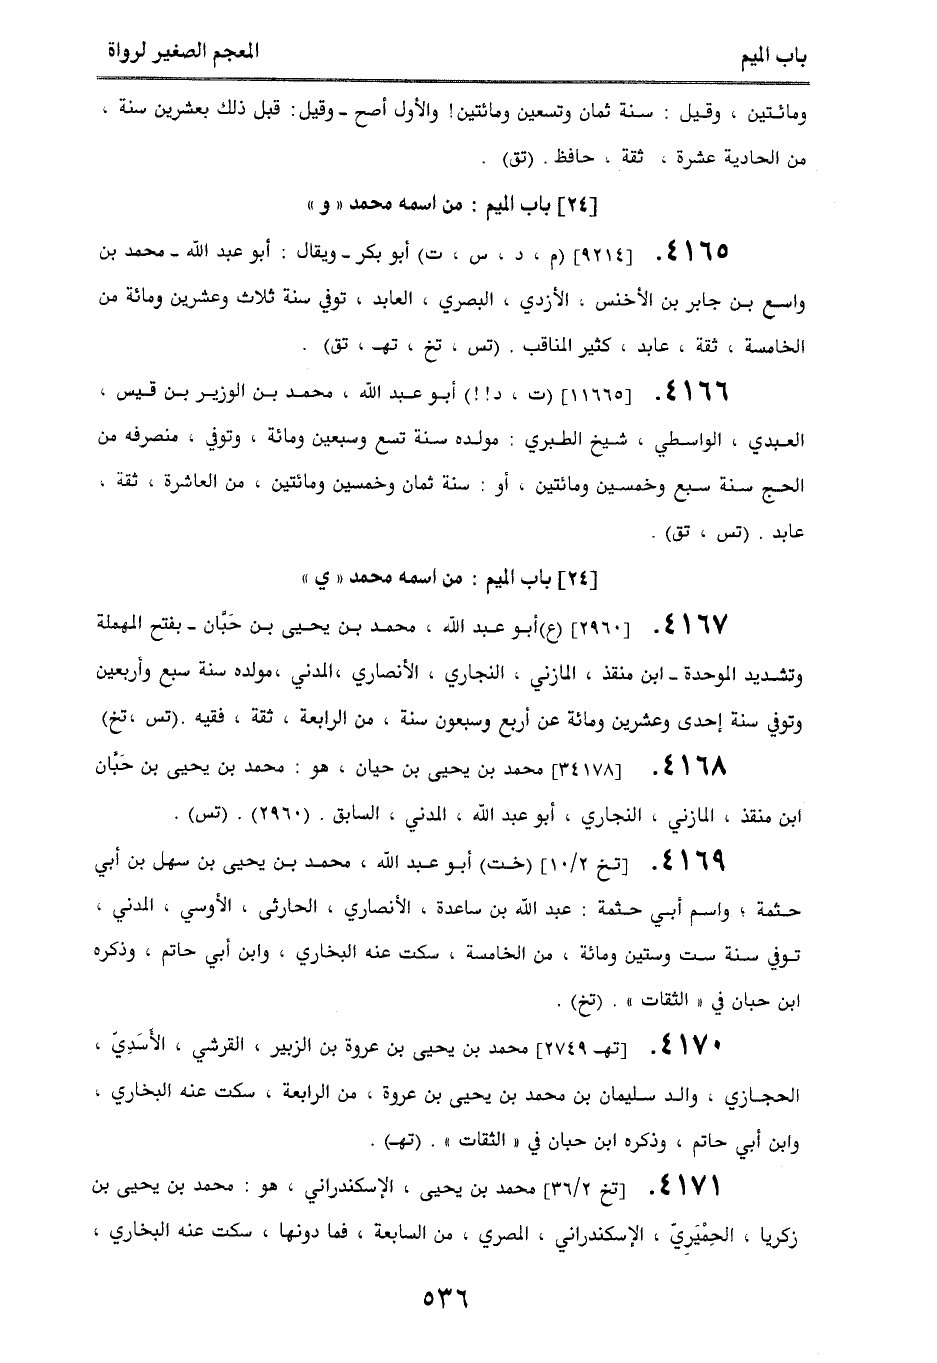 باب الميم
المعجم الصغير لرواة
ومائتين ، وقيل : سنة ثمان وتسعين ومائتين! والأول أصح ـ وقيل: قبل ذلك بعشرين سنة ،
من الحادية عشرة ، ثقة ، حافظ . (تق) .
[٢٤] باب الميم : من اسمه محمد « و »
٤١٦٥. [٩٢١٤] (م ، د ، س ، ت) أبو بكر ـ ويقال : أبو عبد الله ـ محمد بن
واسع بن جابر بن الأخنس ، الأزدي ، البصري ، العابد ، توفي سنة ثلاث وعشرين ومائة من
الخامسة ، ثقة ، عابد ، كثير المناقب . (تس ، تخ ، تهـ ، تق) .
٤١٦٦. [١١٦٦٥] (ت ، د!!) أبو عبد الله ، محمد بن الوزير بن قيس ،
العبدي ، الواسطي ، شيخ الطبري : مولده سنة تسع وسبعين ومائة ، وتوفي ، منصرفه من
الحج سنة سبع وخمسين ومائتين ، أو : سنة ثمان وخمسين ومائتين ، من العاشرة ، ثقة ،
عابد . (تس ، تق) .
[٢٤] باب الميم : من اسمه محمد « ي »
٤١٦٧. [٢٩٦٠] (ع)أبو عبد الله ، محمد بن يحيى بن حَبَّان ـ بفتح المهملة
وتشديد الموحدة ـ ابن منقذ ، المازني ، النجاري ، الأنصاري ،المدني ،مولده سنة سبع وأربعين
وتوفي سنة إحدى وعشرين ومائة عن أربع وسبعون سنة ، من الرابعة ، ثقة ، فقيه .(تس ،تخ)
٤١٦٨. [٣٤١٧٨] محمد بن يحيى بن حيان ، هو : محمد بن يحيى بن حَبَّان
ابن منقذ ، المازني ، النجاري ، أبو عبد الله ، المدني ، السابق . (٢٩٦٠) . (تس) .
٤١٦٩. [تخ ١٠/٢] (خت) أبو عبد الله ، محمد بن يحيى بن سهل بن أبي
حثمة ؛ واسم أبي حثمة : عبد الله بن ساعدة ، الأنصاري ، الحارثى ، الأوسي ، المدني ،
توفي سنة ست وستين ومائة ، من الخامسة ، سكت عنه البخاري ، وابن أبي حاتم ، وذكره
ابن حبان في « الثقات » . (تخ) .
٤١٧٠. [تهـ ٢٧٤٩] محمد بن يحيى بن عروة بن الزبير ، القرشي ، الأَسَدِيّ ،
الحجازي ، والد سليمان بن محمد بن يحيى بن عروة ، من الرابعة ، سكت عنه البخاري ،
وابن أبي حاتم ، وذكره ابن حبان في « الثقات » . (تهـ) .
٤١٧١. [تخ ٣٦/٢] محمد بن يحيى ، الإسكندراني ، هو : محمد بن يحيى بن
زكريا ، الحِمْيَرِيّ ، الإسكندراني ، المصري ، من السابعة ، فما دونها ، سكت عنه البخاري ،
٥٣٦